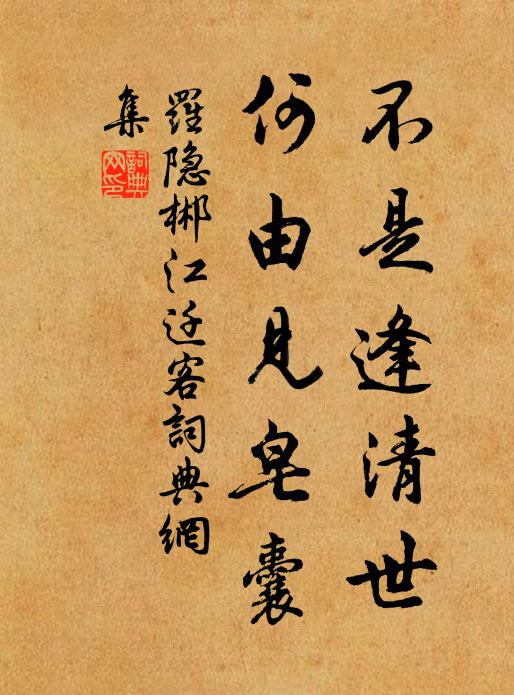 不是逢清世
何由見皂囊
羅隐郴江迁客詞典網
集
詞典
网印